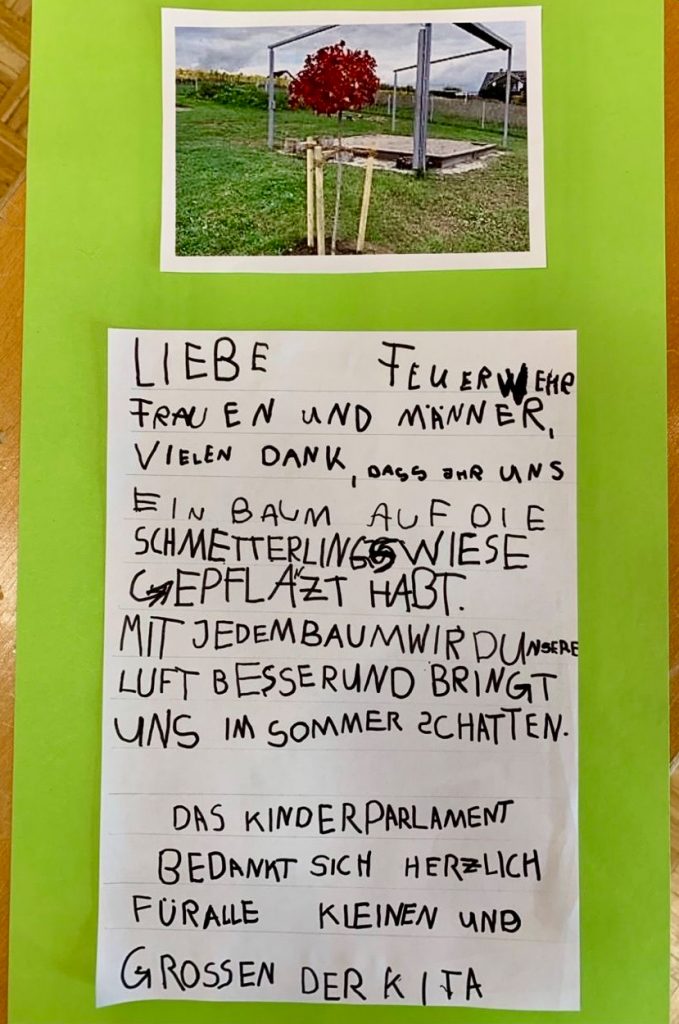 LIEBE FEUERWEHR
FRAUEN UND MÄNNER,
VIELEN DANK, DASS IHR UNS
EIN BAUM AUF DIE
SCHMETTERLINGSWIESE
GEPFLANZT HABT.
MIT JEDEM BAUM WIRD UNSERE
LUFT BESSER UND BRINGT
UNS IM SOMMER SCHATTEN.
DAS KINDERPARLAMENT
BEDANKT SICH HERZLICH
FÜR ALLE KLEINEN UND
GROSSEN DER KITA